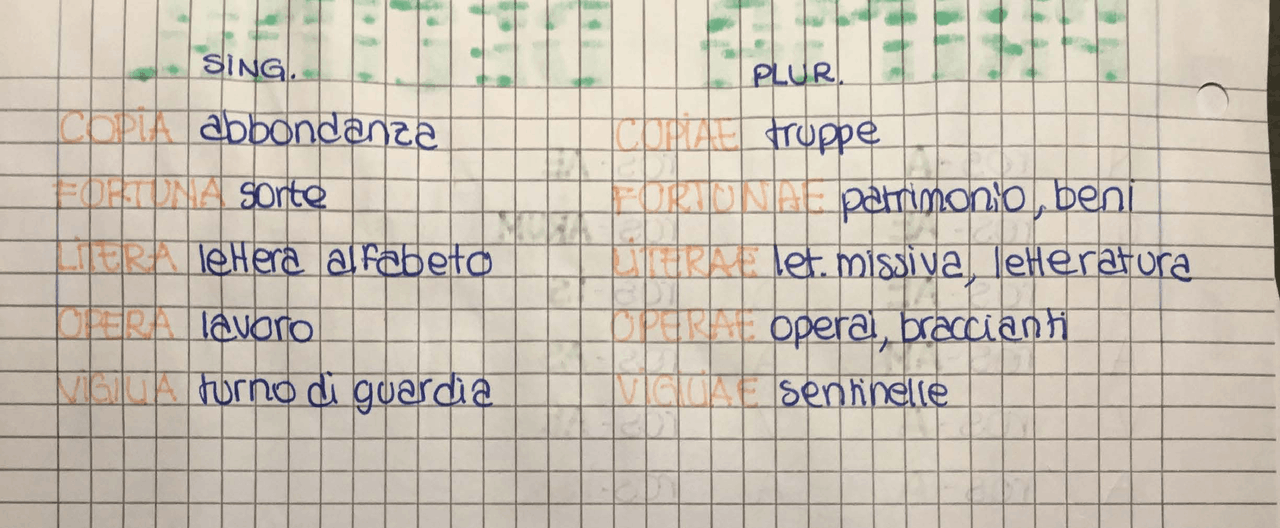 SING. PLUR.
COPIA abbondanza COPIAE truppe
FORTUNA sorte FORTUNAE patrimonio, beni
LITERA lettera alfabeto LITERAE let. missiva, letteratura
OPERA lavoro OPERAE operai, braccianti
VIGILIA turno di guardia VIGILIAE sentinelle